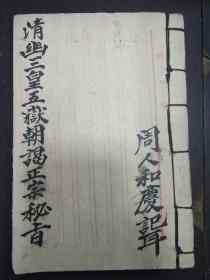 周人和慶記
清幽三皇五嶽朝謁正宗秘旨